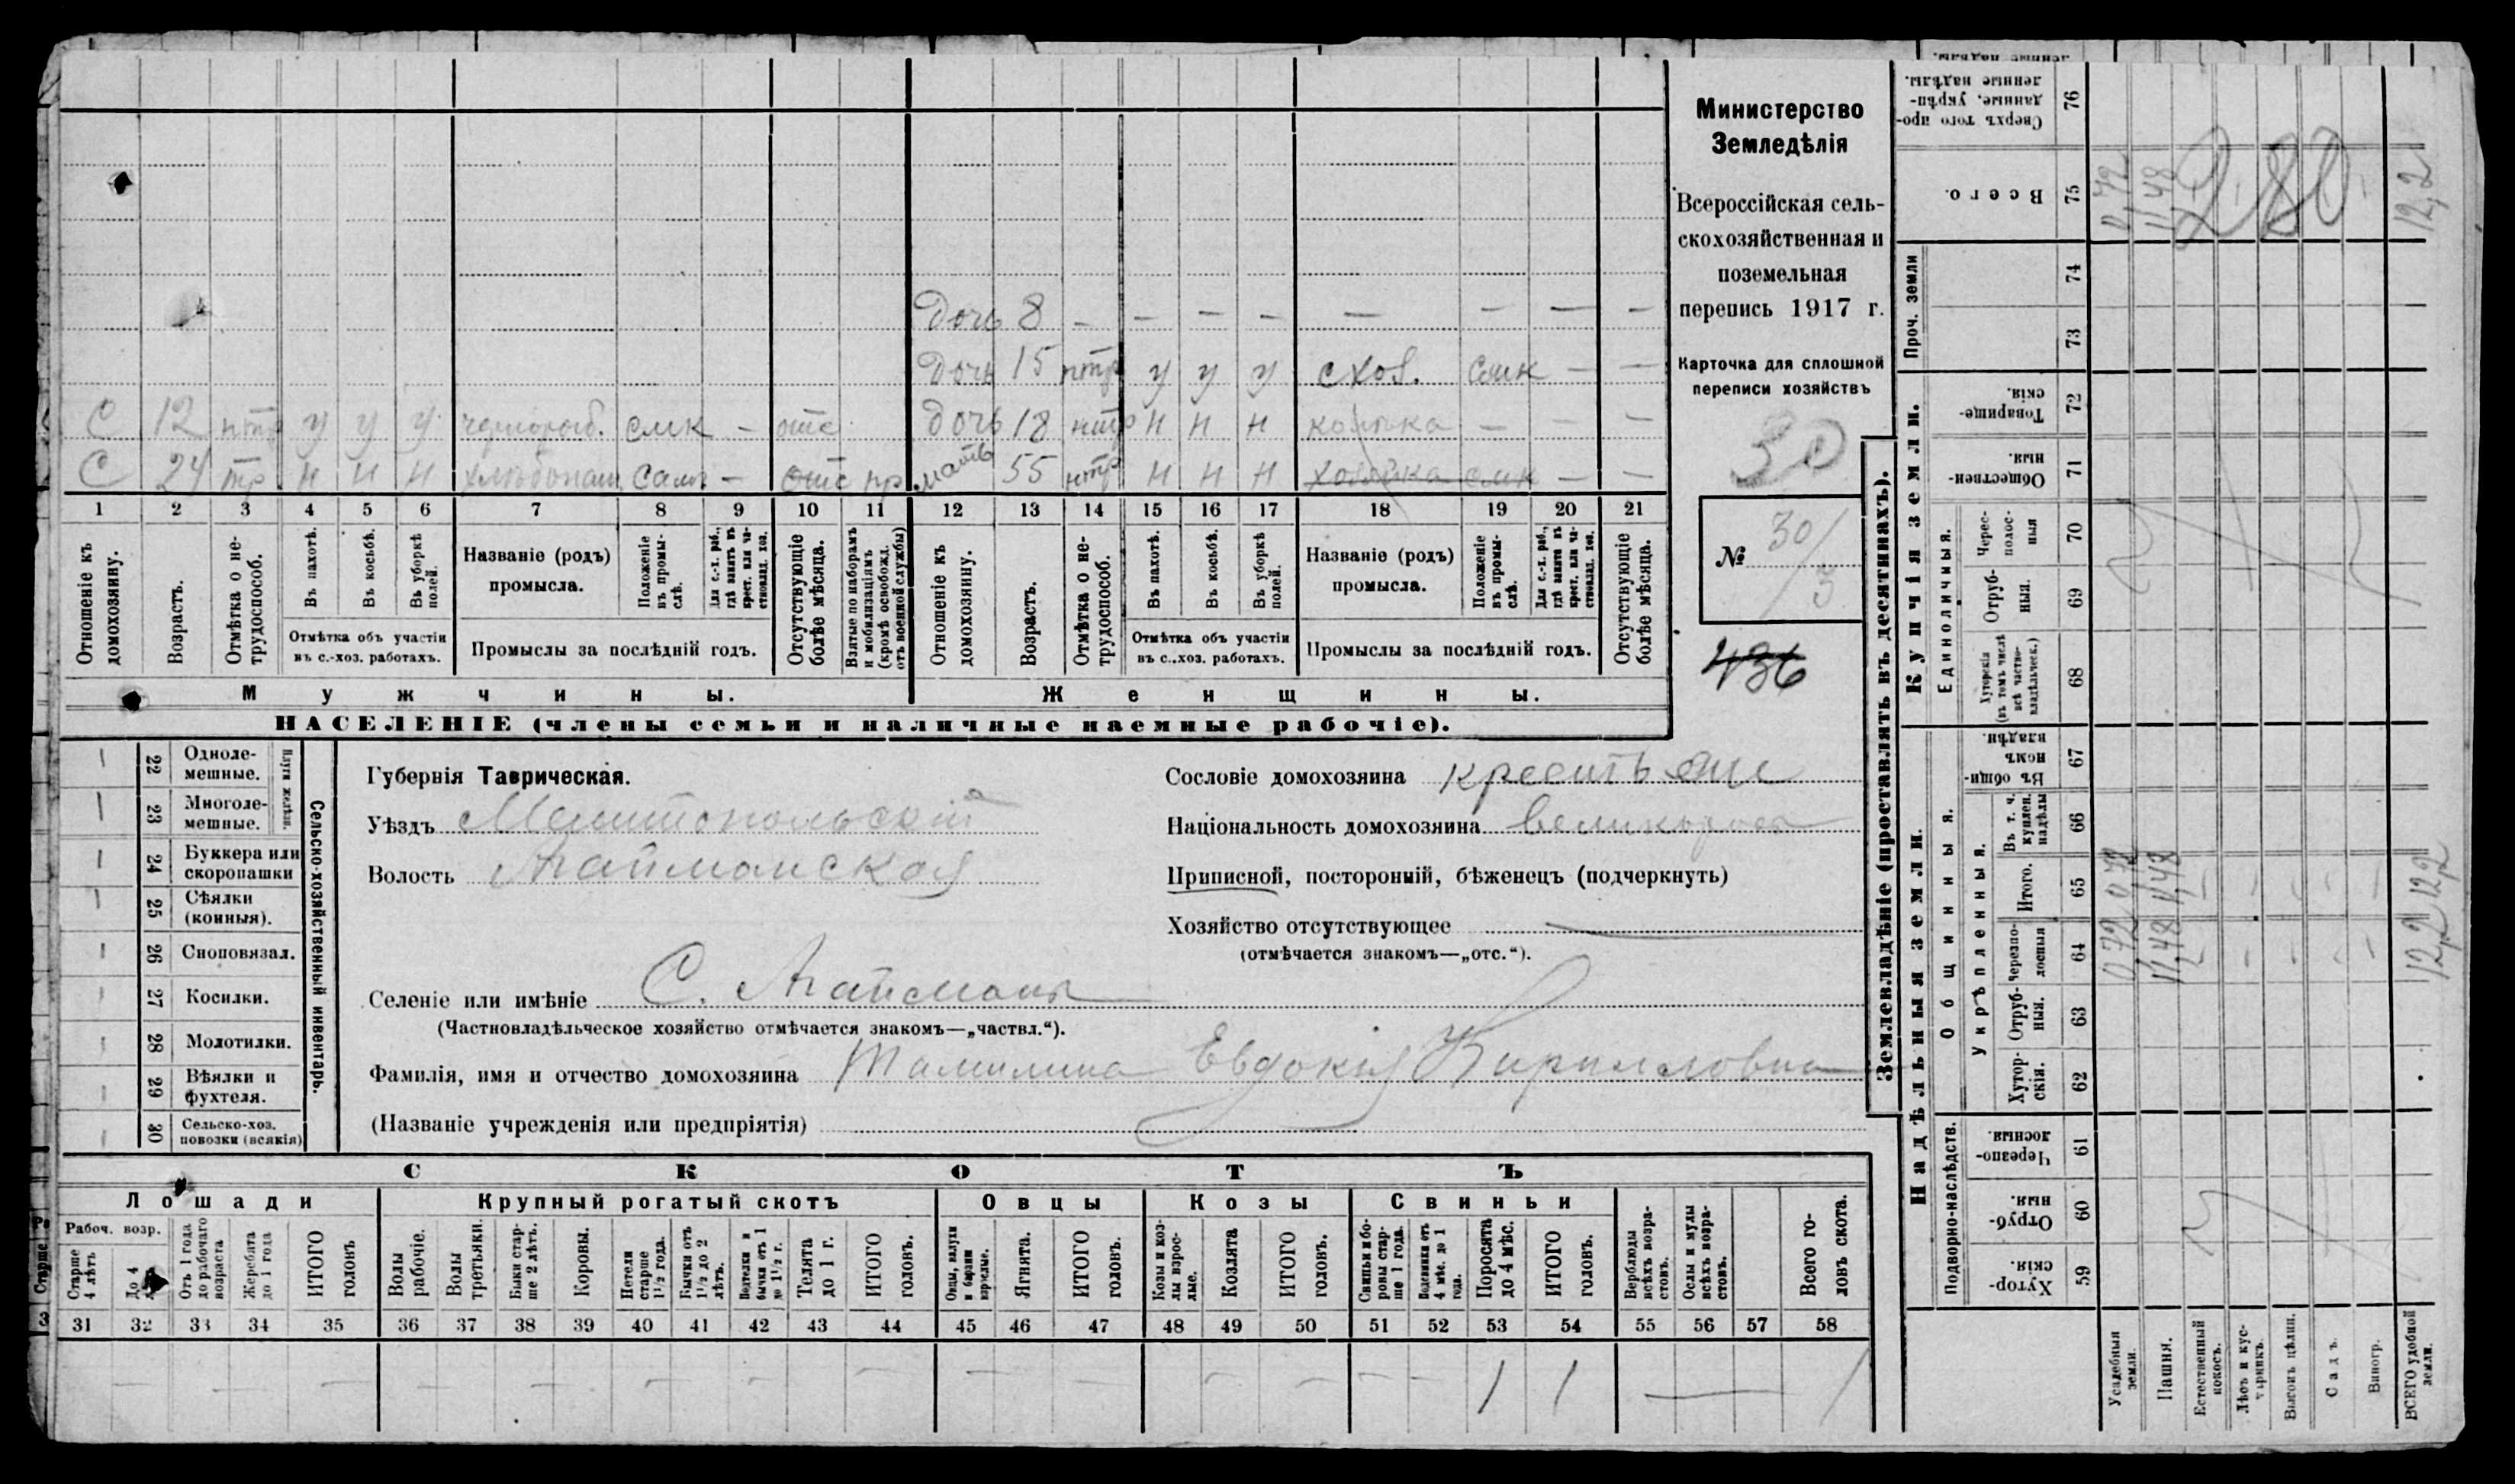 Министерство
Земледѣлія
Всероссійская сель-
скохозяйственная и
поземельная
перепись 1917 г.
Карточка для сплошной
переписи хозяйствъ
30
№ 30/3
436
Дочь 8 — — — — — — — —
Дочь 15 нтр у у у с хоз. смк — —
С 12 нтр у у у чернораб. смк — отс
дочь 18 нтр н н н — — —
С 24 тр н н н хлѣбопаш сам — отс пр
мать 55 нтр н н н хозяйка смк — —
1 2 3 4 5 6 7 8 9 10 11 12 13 14 15 16 17 18 19 20 21
Отношеніе къ домохозяину.
Возрастъ.
Отмѣтка о не-трудоспособ.
Въ пахотѣ.
Въ косьбѣ.
Въ уборкѣ полей.
Отмѣтка объ участіи
въ с.-хоз. работахъ.
Названіе (родъ)
промысла.
Положеніе въ промы-слѣ.
Для с.-х. раб., гдѣ занятъ въ крест. или ча-стновлад. хоз.
Промыслы за послѣдній годъ.
Отсутствующіе болѣе мѣсяца.
Взятые по наборамъ и мобилизаціямъ (кромѣ освобожд. отъ военной службы)
Отношеніе къ домохозяину.
Возрастъ.
Отмѣтка о не-трудоспособ.
Въ пахотѣ.
Въ косьбѣ.
Въ уборкѣ полей.
Отмѣтка объ участіи
въ с.-хоз. работахъ.
Названіе (родъ)
промысла.
Положеніе въ промы-слѣ.
Для с.-х. раб., гдѣ занятъ въ крест. или ча-стновлад. хоз.
Промыслы за послѣдній годъ.
Отсутствующіе болѣе мѣсяца.
Мужчины.
Женщины.
НАСЕЛЕНІЕ (члены семьи и наличные наемные рабочіе).
Сельско-хозяйственный инвентарь.
Плуги желѣзн.
22 Одноле-мешные.
23 Многоле-мешные.
24 Буккера или скоропашки
25 Сѣялки (конныя).
26 Сноповязал.
27 Косилки.
28 Молотилки.
29 Вѣялки и фухтеля.
30 Сельско-хоз. повозки (всякія)
Губернія Таврическая.
Уѣздъ Мелитопольскій
Волость Агайманская
Сословіе домохозяина крестьяне
Національность домохозяина великоросъ
Приписной, посторонній, бѣженецъ (подчеркнуть)
Хозяйство отсутствующее —
(отмѣчается знакомъ—„отс.“).
Селеніе или имѣніе С. Агайманы
(Частновладѣльческое хозяйство отмѣчается знакомъ—„частвл.“).
Фамилія, имя и отчество домохозяина Евдокія Кирилловна
(Названіе учрежденія или предпріятія)
СКОТЪ
Лошади
Крупный рогатый скотъ
Овцы
Козы
Свиньи
Рабоч. возр.
Старше 4 лѣтъ
До 4
Отъ 1 года до рабочаго возраста
Жеребята до 1 года
ИТОГО головъ
Волы рабочіе.
Волы третьяки.
Быки стар-ше 2 лѣтъ.
Коровы.
Нетели старше 1½ года.
Бычки отъ 1½ до 2 лѣтъ.
Подтелки и бычки отъ 1 до 1½ г.
Телята до 1 г.
ИТОГО головъ.
Овцы, валухи и бараны взрослые.
Ягнята.
ИТОГО головъ.
Козы и коз-лы взрос-лые.
Козлята
ИТОГО головъ.
Свиньи и бо-ровы стар-ше 1 года.
Подсвинки отъ 4 мѣс. до 1 года.
Поросята до 4 мѣс.
ИТОГО головъ.
Верблюды всѣхъ возра-стовъ.
Ослы и мулы всѣхъ возра-стовъ.
Всего го-ловъ скота.
31 32 33 34 35 36 37 38 39 40 41 42 43 44 45 46 47 48 49 50 51 52 53 54 55 56 57 58
1 1 — 1
Землевладѣніе (проставлять въ десятинахъ).
Надѣльныя земли.
Купчія земли.
Проч. земли
Подворно-наслѣдств.
Общинныя.
Укрѣпленныя.
Единоличныя.
59 Хутор-скія.
60 Отруб-ныя.
61 Черезпо-лосныя.
62 Хутор-скія.
63 Отруб-ныя.
64 Черезпо-лосныя
65 Итого.
66 Въ т. ч. куплен. надѣлы
67 Въ общи-номъ владѣн.
68 Хуторскія (въ томъ числѣ всѣ частно-владѣльческ.)
69 Отруб-ныя.
70 Черес-полос-ныя
71 Обществен-ныя.
72 Товарище-скія.
73
74
75 Всего.
76 Сверхъ того про-данные, укрѣп-ленные надѣлы.
Усадебныя земли. 0,72 0,72 0,72
Пашня. 11,48 11,48 11,48
Естественный покосъ.
Лѣсъ и кус-тарникъ.
Выгонъ цѣлин.
Садъ.
Виногр.
ВСЕГО удобной земли. 12,2 12,2 12,2
280